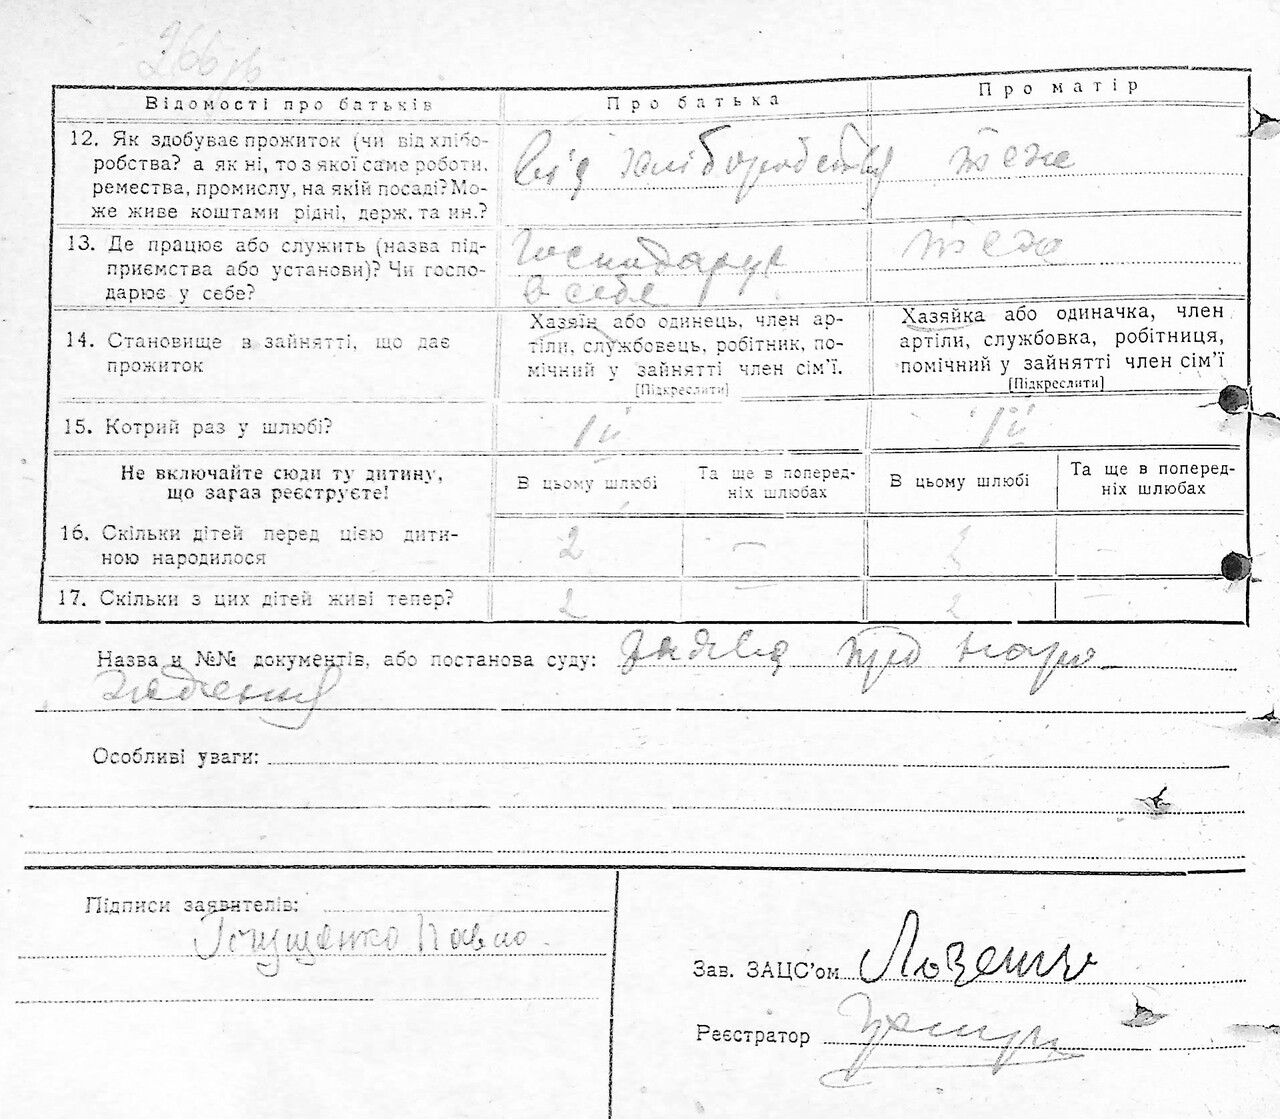 266
Відомості про батьків
Про батька
Про матір
12. Як здобуває прожиток (чи від хлібо-
робства? а як ні, то з якої саме роботи,
ремества, промислу, на якій посаді? Мо-
же живе коштами рідні, держ. та ин.?
Від хліборобства
теж
13. Де працює або служить (назва під-
приємства або установи)? Чи госпо-
дарює у себе?
Господарує
в себе
14. Становище в зайнятті, що дає
прожиток
Хазяїн або одинець, член ар-
тіли, службовець, робітник, по-
мічний у зайнятті член сім’ї.
[Підкреслити]
Хазяйка або одиначка, член
артіли, службовка, робітниця,
помічний у зайнятті член сім’ї
[Підкреслити]
15. Котрий раз у шлюбі?
1й
1й
Не включайте сюди ту дитину,
що зараз реєструєте!
В цьому шлюбі
Та ще в поперед-
ніх шлюбах
В цьому шлюбі
Та ще в поперед-
ніх шлюбах
16. Скільки дітей перед цією дити-
ною народилося
2
—
2
—
17. Скільки з цих дітей живі тепер?
2
—
2
—
Назва и №№ документів, або постанова суду: заява про наро-
дження
Особливі уваги:
Підписи заявителів:
Павло
Зав. ЗАЦС’ом
Реєстратор